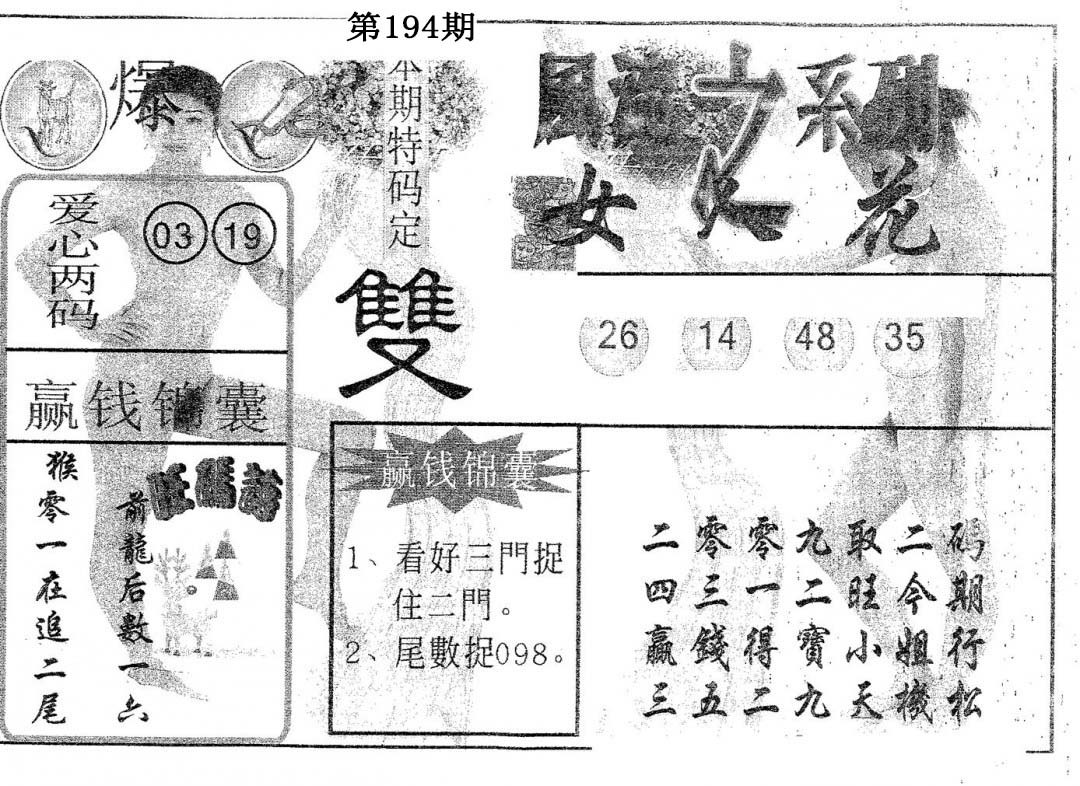 第194期
爆
本期特码定
雙
系列
女人花
爱心两码
03 19
26 14 48 35
赢钱锦囊
猴零一在追二尾
前龍后数一六
赢钱锦囊
1、看好三門捉
住二門。
2、尾數捉098。
二零零九取二码
四三一二旺今期
赢錢得寶小姐行
三五二九天機松